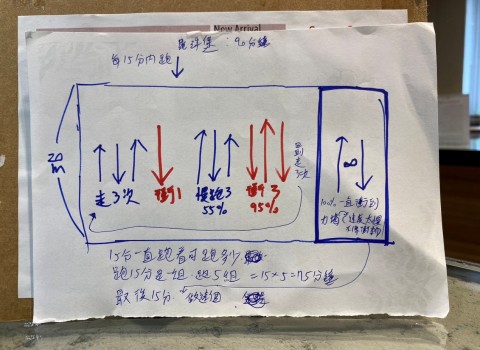 New Arrival
90分鐘
每15分內跑
20m
走3次
衝刺1
慢跑3
55%
衝刺3
95%
回到走3次
∞
100% 一直衝到
力竭
15分一直跑看可跑多少
跑15分是一組 跑5組 =15×5=75分鐘
最後15分